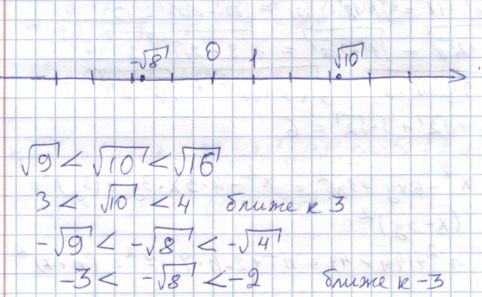 -√8 0 1 √10
√9 < √10 < √16
3 < √10 < 4 ближе к 3
-√9 < -√8 < -√4
-3 < -√8 < -2 ближе к -3